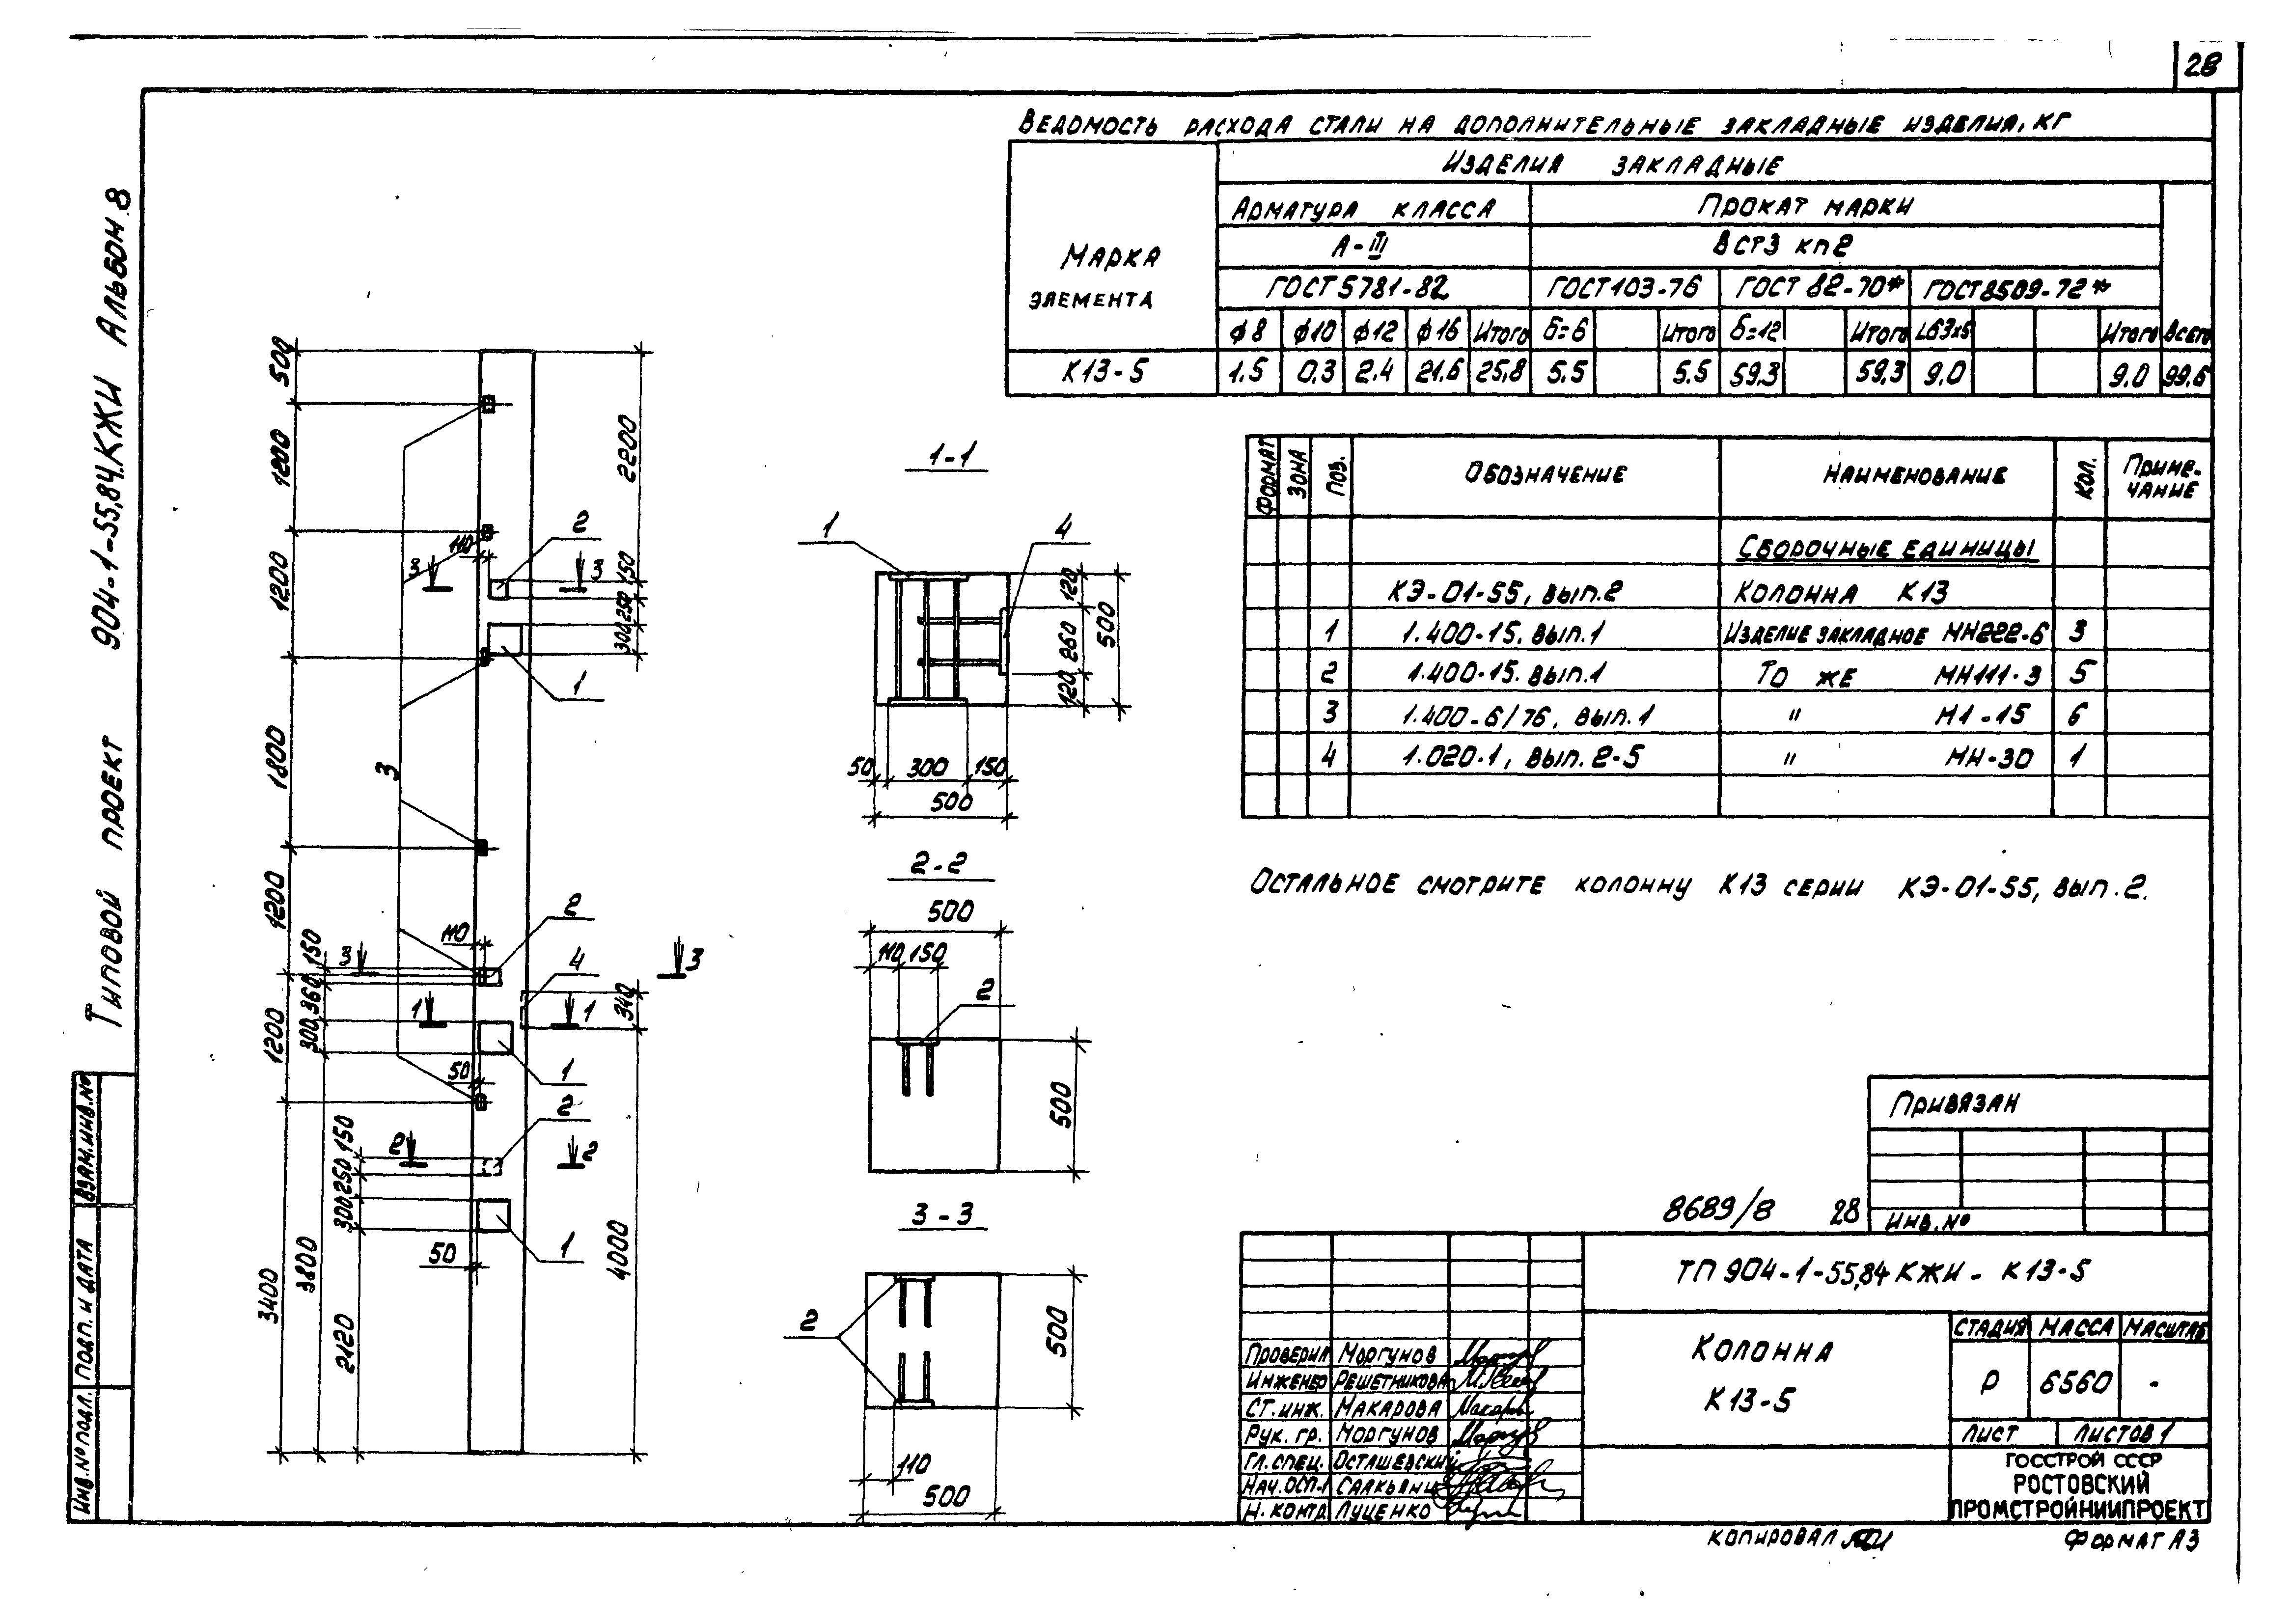 28
Ведомость расхода стали на дополнительные закладные изделия, кг
Марка элемента
Изделия закладные
Арматура класса
Прокат марки
А-III
ВСт3 кп2
ГОСТ 5781-82
ГОСТ 103-76
ГОСТ 82-70*
ГОСТ 8509-72*
ф8 ф10 ф12 ф16 Итого δ=6 Итого δ=12 Итого L63х5 Итого Всего
К13-5 1.5 0.3 2.4 21.6 25,8 5.5 5.5 59.3 59.3 9.0 9.0 99.6
Формат Зона Поз. Обозначение Наименование Кол. Примечание
Сборочные единицы
КЭ-01-55, вып.2 Колонна К13
1 1.400-15. вып.1 Изделие закладное МН222-6 3
2 1.400-15. вып.1 То же МН111-3 5
3 1.400-6/76, вып.1 " М1-15 6
4 1.020-1, вып. 2-5 " МН-30 1
Остальное смотрите колонну К13 серии КЭ-01-55, вып.2.
Типовой проект 904-1-55,84.КЖИ Альбом 8
Инв.№ подл. Подп. и дата Взам.инв.№
500
1200
1200
1800
1200
1200
3400
2200
150
250
300
110
3
3
2
1
3
2
110
150
360
300
3
3
4
340
1
1
50
1
2
150
250
300
2
2
1
50
3800
2120
4000
1-1
1
4
120
260
120
500
50
300
150
500
2-2
500
110
150
2
500
3-3
2
500
110
500
Привязан
Инв.№
8689/8 28
ТП 904-1-55,84 КЖИ - К13-5
Колонна
К13-5
Стадия Масса Масштаб
Р 6560 -
Лист Листов 1
ГОССТРОЙ СССР
РОСТОВСКИЙ
ПРОМСТРОЙНИИПРОЕКТ
Проверил Моргунов
Инженер Решетникова
Ст.инж. Макарова
Рук. гр. Моргунов
Гл.спец. Осташевский
Нач.ОСП-1 Саакьянц
Н. контр. Луценко
Копировал
Формат А3